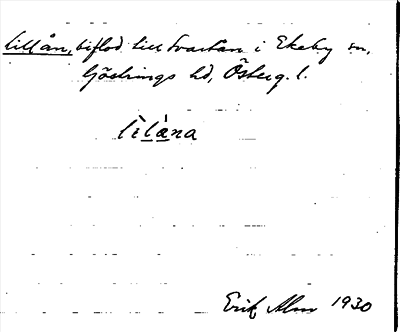 Lillån, biflod till Svartån i Ekeby sn,
Göstrings hd, Österg. l.
lìlå̀na
Erik Alm 1930